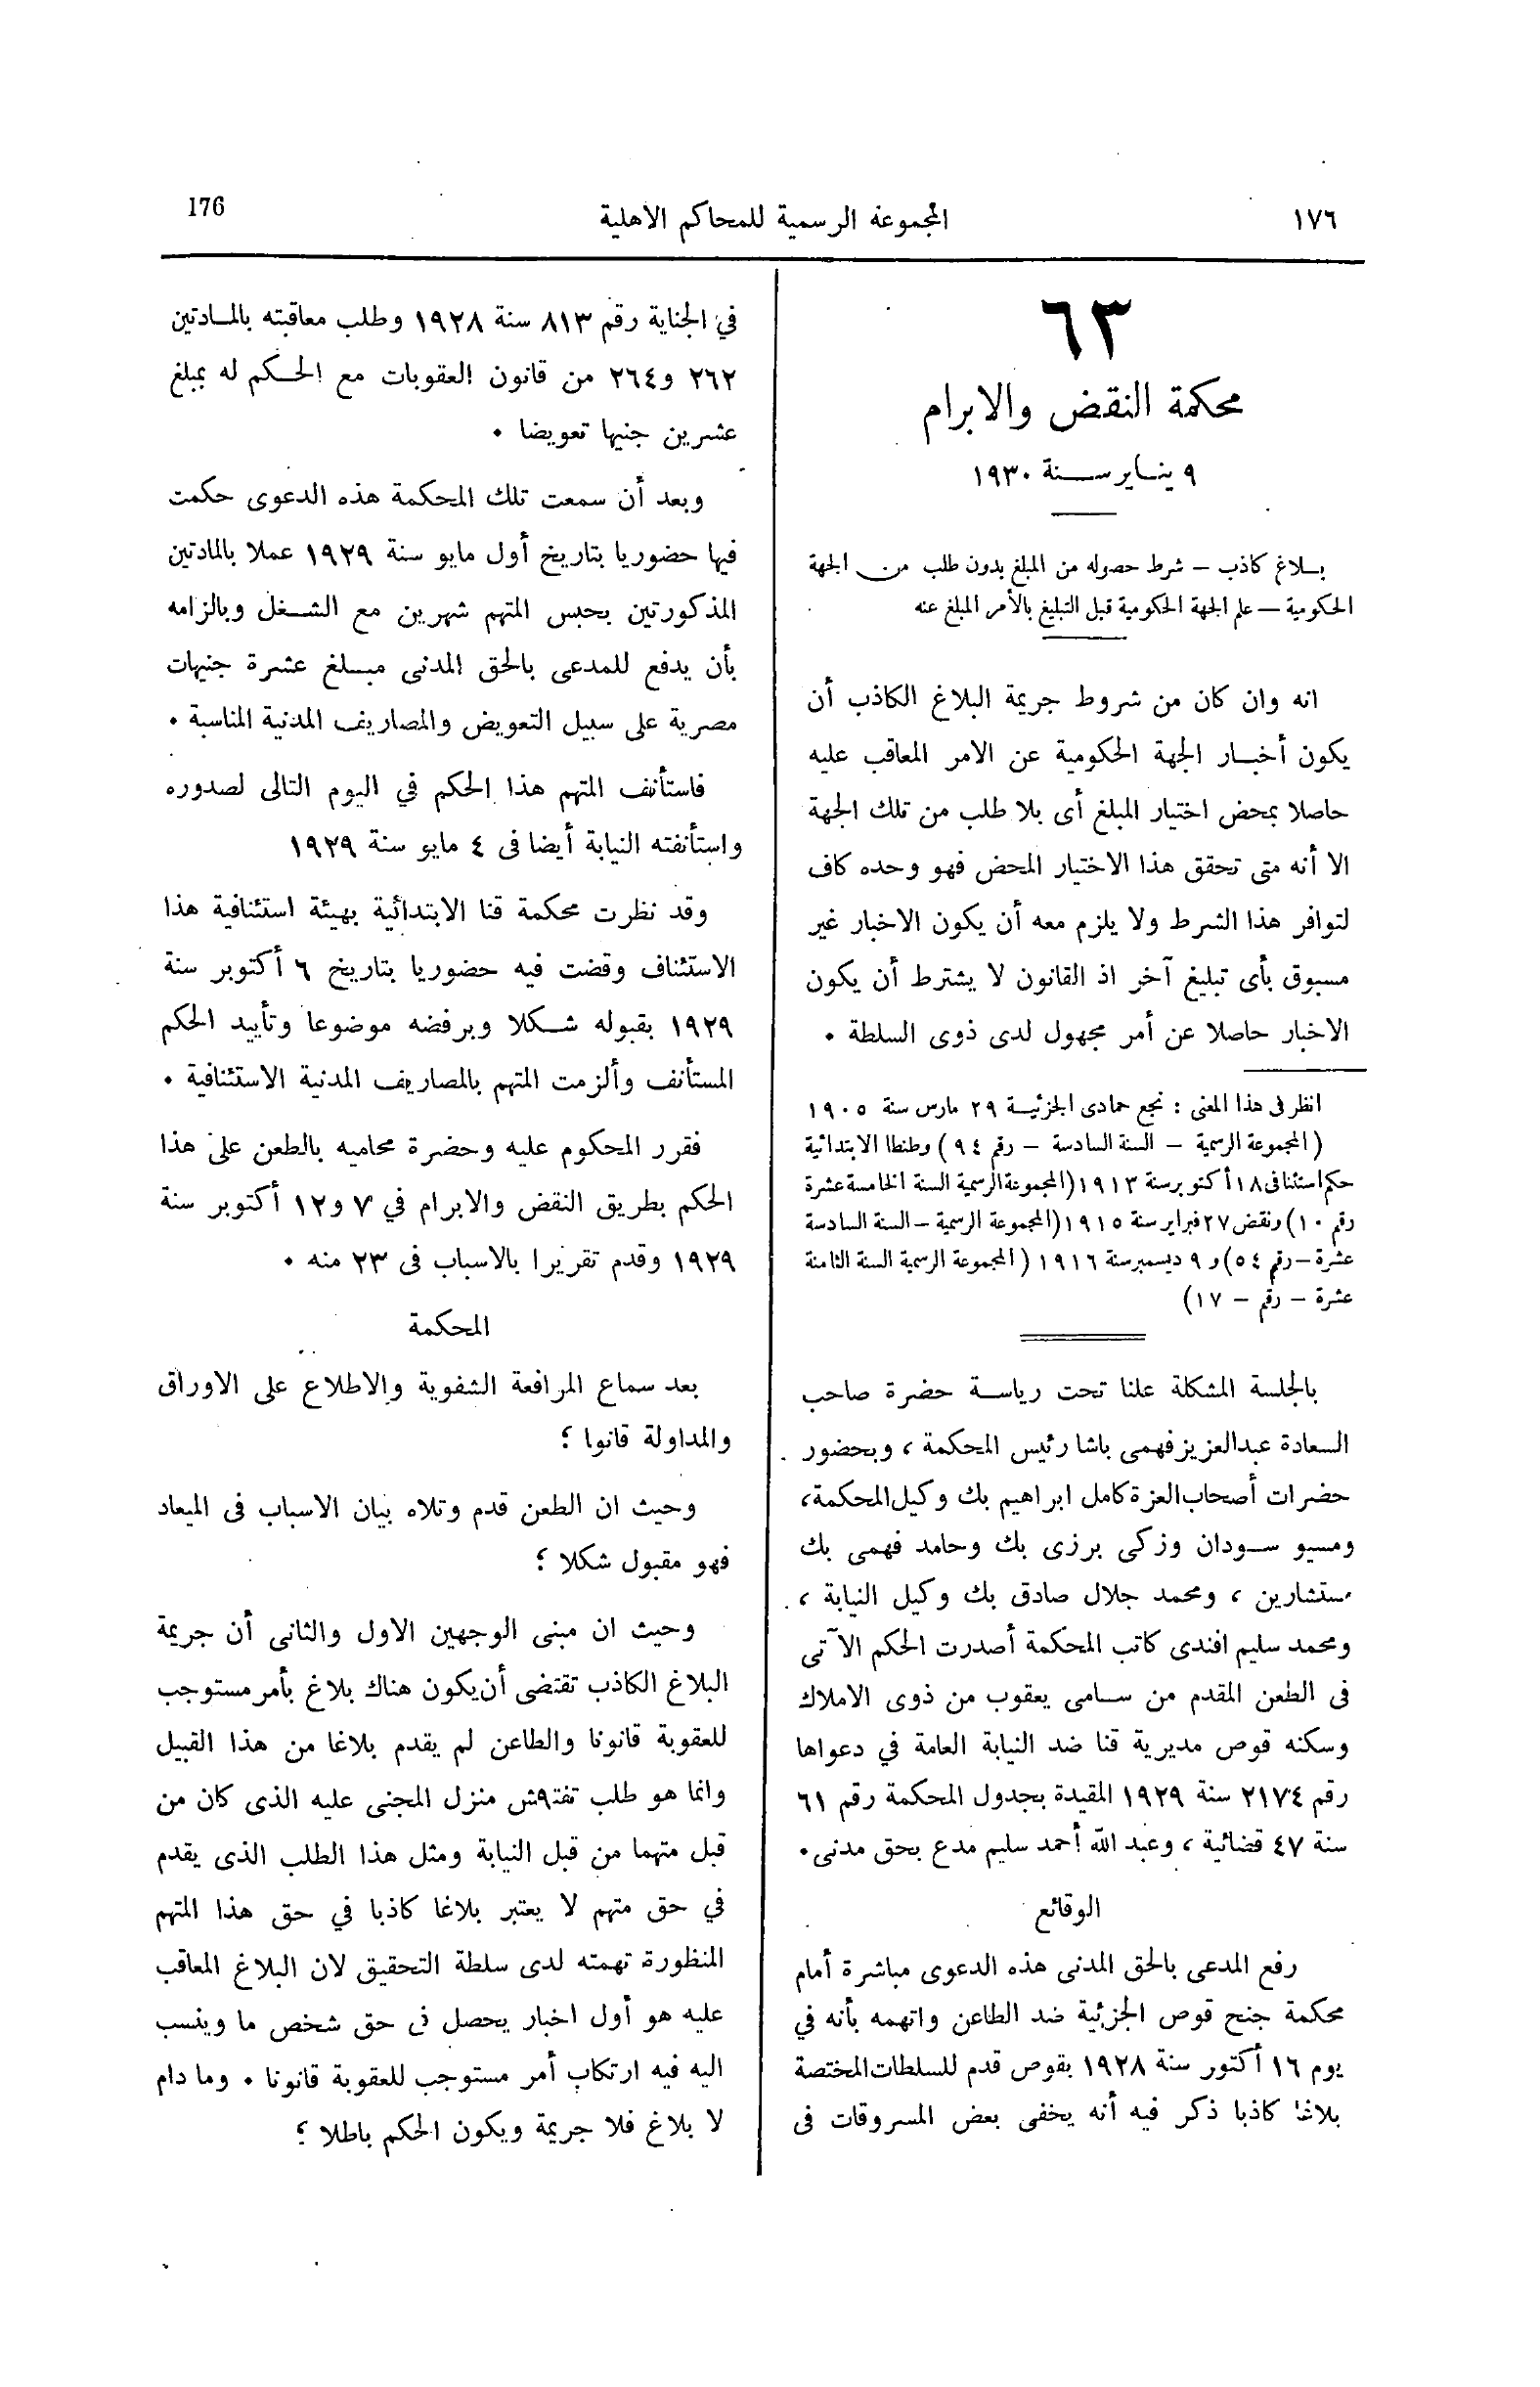 ١٧٦
المجموعة الرسمية للمحاكم الاهلية
176
٦٣
محكمة النقض والابرام
٩ ينــاير ســـنة ١٩٣٠
بــلاغ كاذب – شرط حصوله من المبلغ بدون طلب من الجهة
الحكومية – علم الجهة الحكومية قبل التبليغ بالأمر المبلغ عنه
انه وان كان من شروط جريمة البلاغ الكاذب أن
يكون أخبــار الجهة الحكومية عن الامر المعاقب عليه
حاصلا بمحض اختيار المبلغ أى بلا طلب من تلك الجهة
الا أنه متى تحقق هذا الاختيار المحض فهو وحده كاف
لتوافر هذا الشرط ولا يلزم معه أن يكون الاخبار غير
مسبوق بأى تبليغ آخر اذ القانون لا يشترط أن يكون
الاخبار حاصلا عن أمر مجهول لدى ذوى السلطة ٠
انظر فى هذا المعنى : نجع حمادى الجزئيــة ٢٩ مارس سنة ١٩٠٥
( المجموعة الرسمية – السنة السادسة – رقم ٩٤ ) وطنطا الابتدائية
حكم استئنافى ١٨ أكتوبر سنة ١٩١٣ (المجموعة الرسمية السنة الخامسة عشرة
رقم ١٠) ونقض ٢٧ فبراير سنة ١٩١٥ (المجموعة الرسمية – السنة السادسة
عشرة – رقم ٥٤) و ٩ ديسمبر سنة ١٩١٦ ( المجموعة الرسمية السنة الثامنة
عشرة – رقم – ١٧)
بالجلسة المشكلة علنا تحت رياســة حضرة صاحب
السعادة عبد العزيز فهمى باشا رئيس المحكمة ، وبحضور
حضرات أصحاب العزة كامل ابراهيم بك وكيل المحكمة،
ومسيو ســودان وزكى برزى بك وحامد فهمى بك
مستشارين ، ومحمد جلال صادق بك وكيل النيابة ،
ومحمد سليم افندى كاتب المحكمة أصدرت الحكم الآتى
فى الطعن المقدم من ســامى يعقوب من ذوى الاملاك
وسكنه قوص مديرية قنا ضد النيابة العامة في دعواها
رقم ٢١٧٤ سنة ١٩٢٩ المقيدة بجدول المحكمة رقم ٦١
سنة ٤٧ قضائية ، وعبد الله أحمد سليم مدع بحق مدنى٠
الوقائع
رفع المدعى بالحق المدنى هذه الدعوى مباشرة أمام
محكمة جنح قوص الجزئية ضد الطاعن واتهمه بأنه في
يوم ١٦ أكتور سنة ١٩٢٨ بقوص قدم للسلطات المختصة
بلاغا كاذبا ذكر فيه أنه يخفى بعض المسروقات فى
في الجناية رقم ٨١٣ سنة ١٩٢٨ وطلب معاقبته بالمــادتين
٢٦٢ و٢٦٤ من قانون العقوبات مع الحــكم له بمبلغ
عشرين جنيها تعويضا ٠
وبعد أن سمعت تلك المحكمة هذه الدعوى حكمت
فيها حضوريا بتاريخ أول مايو سنة ١٩٢٩ عملا بالمادتين
المذكورتين بحبس المتهم شهرين مع الشــغل وبالزامه
بأن يدفع للمدعى بالحق المدنى مبــلغ عشرة جنيهات
مصرية على سبيل التعويض والمصاريف المدنية المناسبة ٠
فاستأنف المتهم هذا الحكم في اليوم التالى لصدوره
واستأنفته النيابة أيضا فى ٤ مايو سنة ١٩٢٩
وقد نظرت محكمة قنا الابتدائية بهيئة استئنافية هذا
الاستئناف وقضت فيه حضوريا بتاريخ ٦ أكتوبر سنة
١٩٢٩ بقبوله شــكلا وبرفضه موضوعا وتأييد الحكم
المستأنف وألزمت المتهم بالمصاريف المدنية الاستئنافية ٠
فقرر المحكوم عليه وحضرة محاميه بالطعن على هذا
الحكم بطريق النقض والابرام في ٧ و١٢ أكتوبر سنة
١٩٢٩ وقدم تقريرا بالاسباب فى ٢٣ منه ٠
المحكمة
بعد سماع المرافعة الشفوية والاطلاع على الاوراق
والمداولة قانوا ؛
وحيث ان الطعن قدم وتلاه بيان الاسباب فى الميعاد
فهو مقبول شكلا ؛
وحيث ان مبنى الوجهين الاول والثانى أن جريمة
البلاغ الكاذب تقتضى أن يكون هناك بلاغ بأمر مستوجب
للعقوبة قانونا والطاعن لم يقدم بلاغا من هذا القبيل
وانما هو طلب تفتيش منزل المجنى عليه الذى كان من
قبل متهما من قبل النيابة ومثل هذا الطلب الذى يقدم
في حق متهم لا يعتبر بلاغا كاذبا في حق هذا المتهم
المنظورة تهمته لدى سلطة التحقيق لان البلاغ المعاقب
عليه هو أول اخبار يحصل فى حق شخص ما وينسب
اليه فيه ارتكاب أمر مستوجب للعقوبة قانونا ٠ وما دام
لا بلاغ فلا جريمة ويكون الحكم باطلا ؛